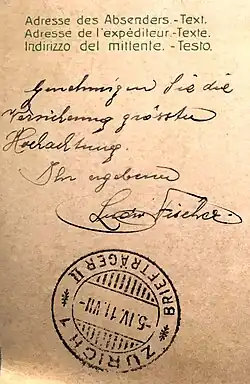 Adresse des Absenders.-Text.
Adresse de l'expéditeur.-Texte.
Indirizzo del mittente.-Testo.
Genehmigen Sie die
Versicherung grösster
Hochachtung.
Ihr ergebener
Ludw Fischer.
ZÜRICH 1
BRIEFTRÄGER II
-5.IV.11.VII-